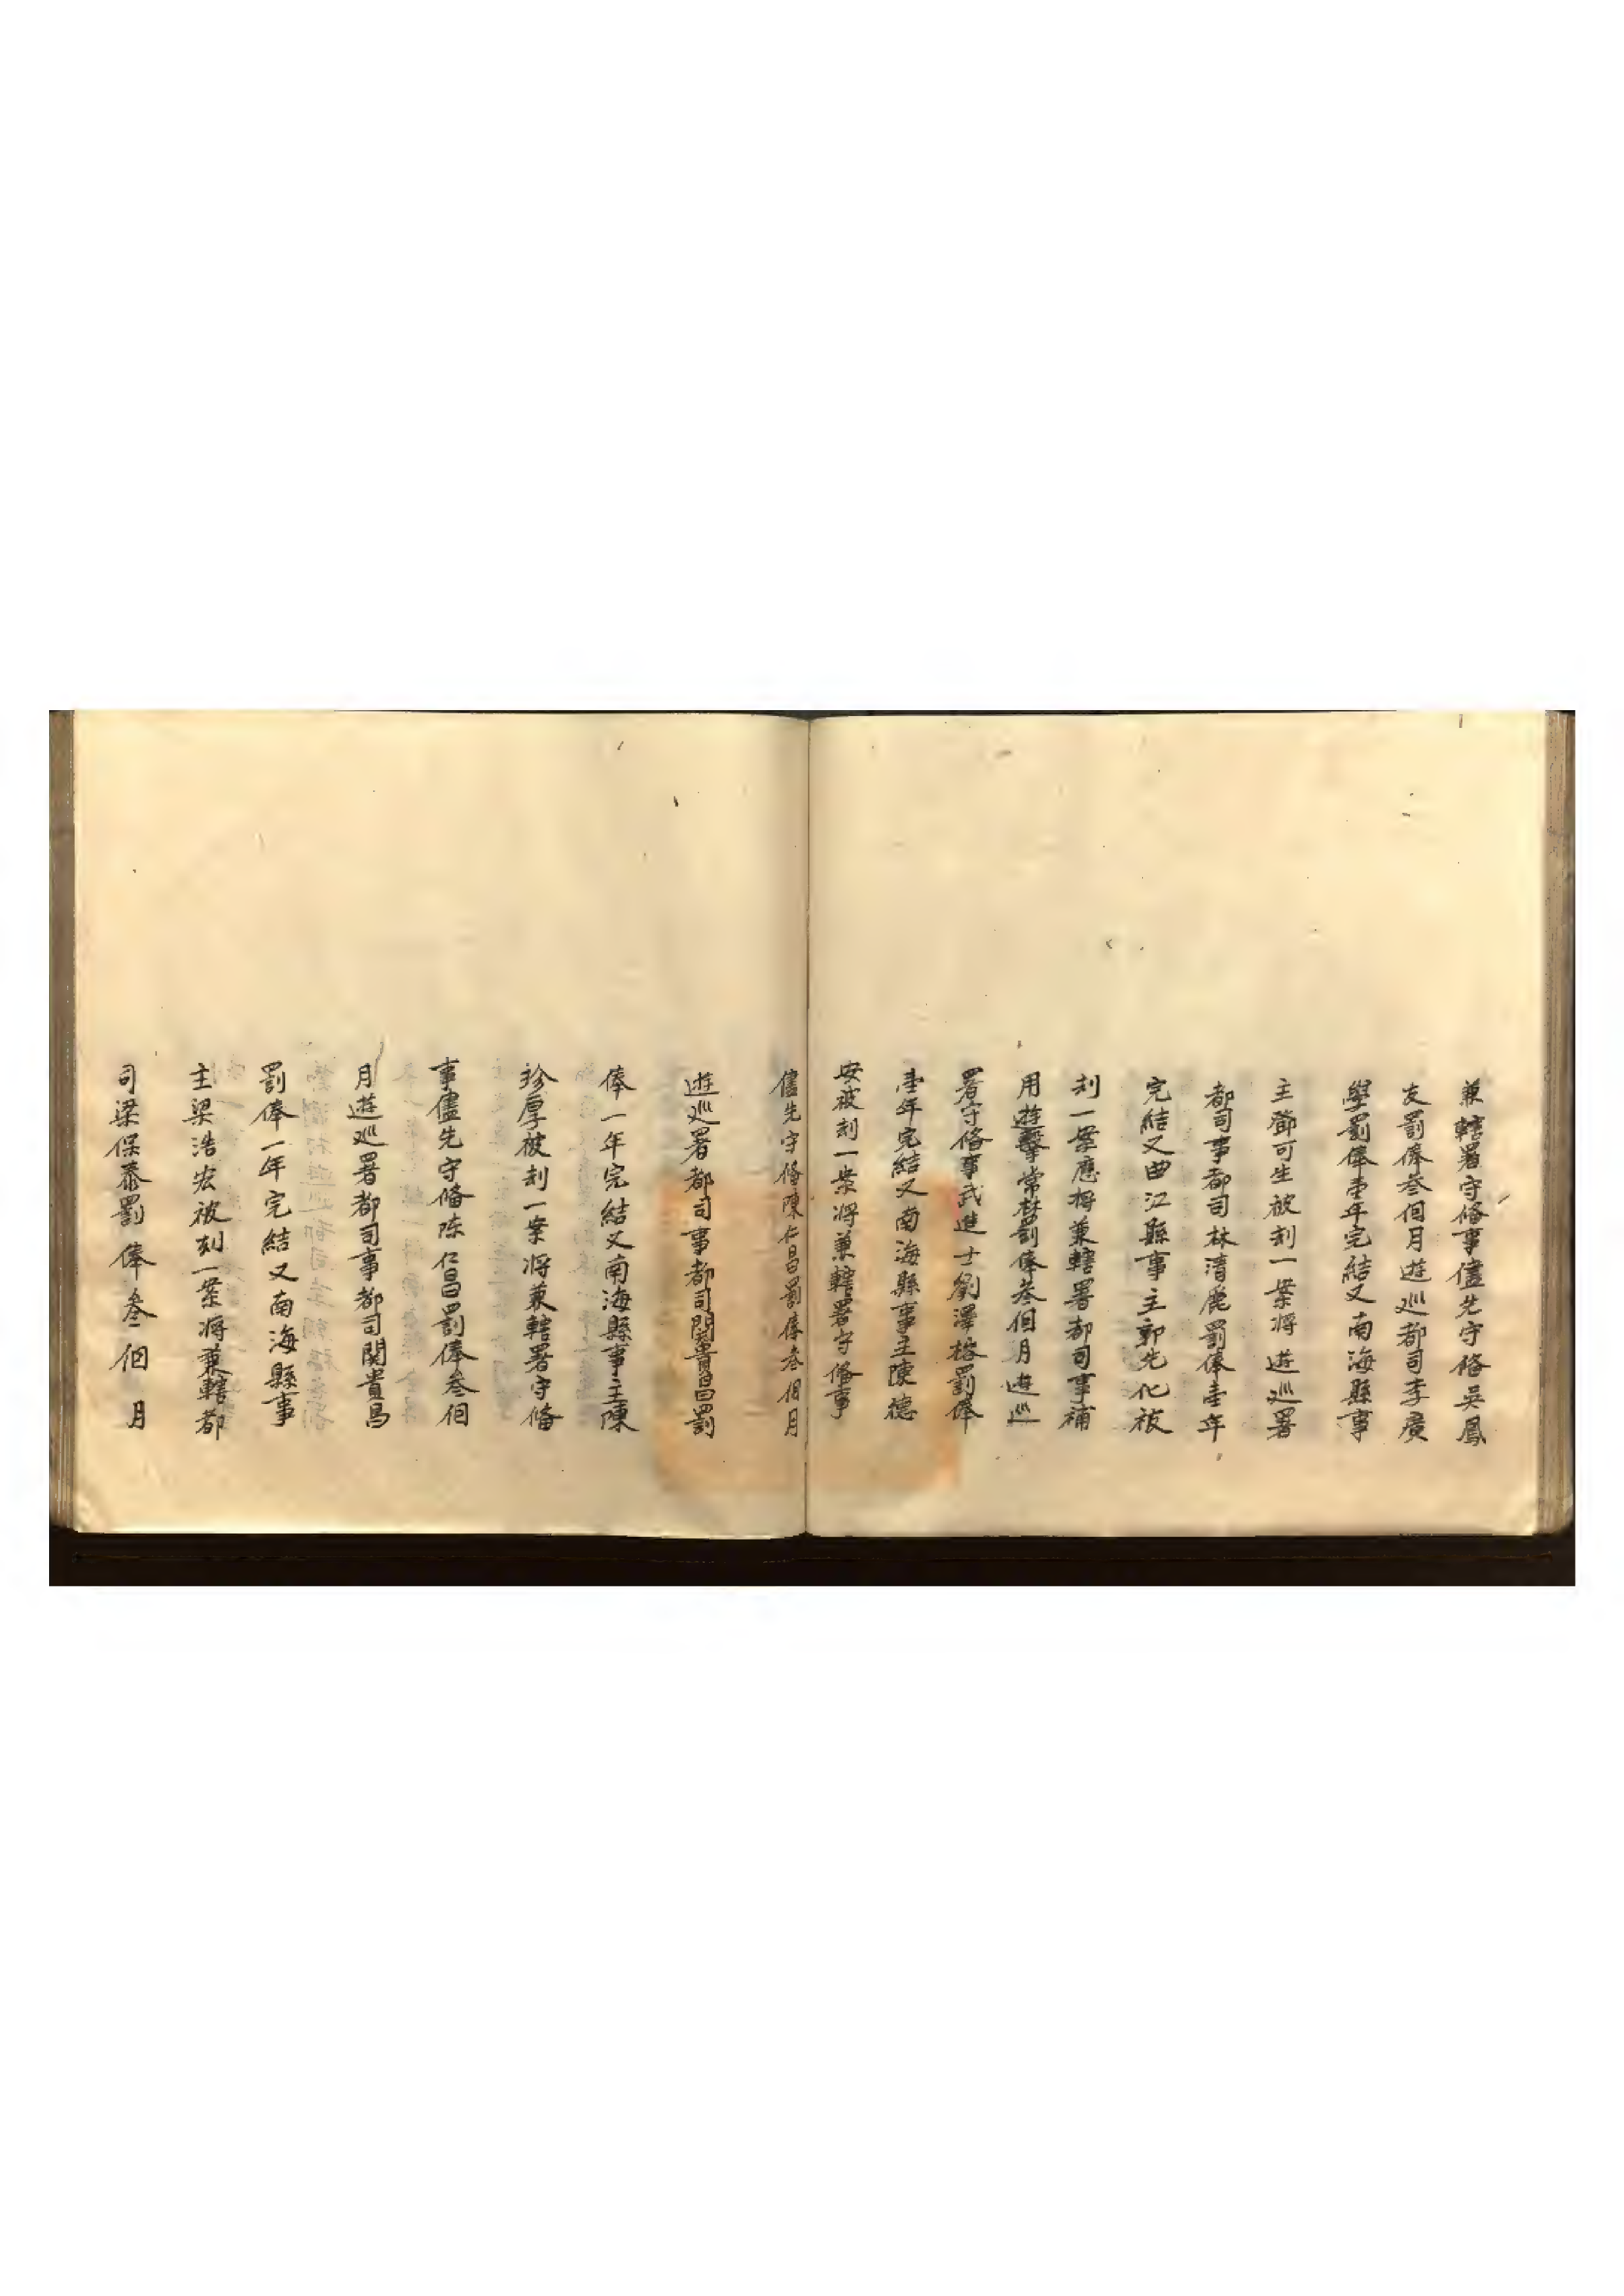 兼轄署守俻事儘先守俻吳鳳
友罰俸叁個月遊巡都司李廣
學罰俸壹年完結又南海縣事
主鄧可生被刦一案將遊巡署
都司事都司林清麗罰俸壹年
完結又曲江縣事主郭先化被
刦一案應將兼轄署都司事補
用遊擊常林罰俸叁個月遊巡
署守俻事武進士劉澤榕罰俸
壹年完結又南海縣事主陳德
安被刦一案將兼轄署守俻事
儘先守俻陳仁昌罰俸叁個月
遊巡署都司事都司関貴昌罰
俸一年完結又南海縣事主陳
珍厚被刦一案將兼轄署守俻
事儘先守俻陈仁昌罰俸叁個
月遊巡署都司事都司関貴昌
罰俸一年完結又南海縣事
主梁浩宏被刦一案將兼轄都
司梁保泰罰俸叁個月